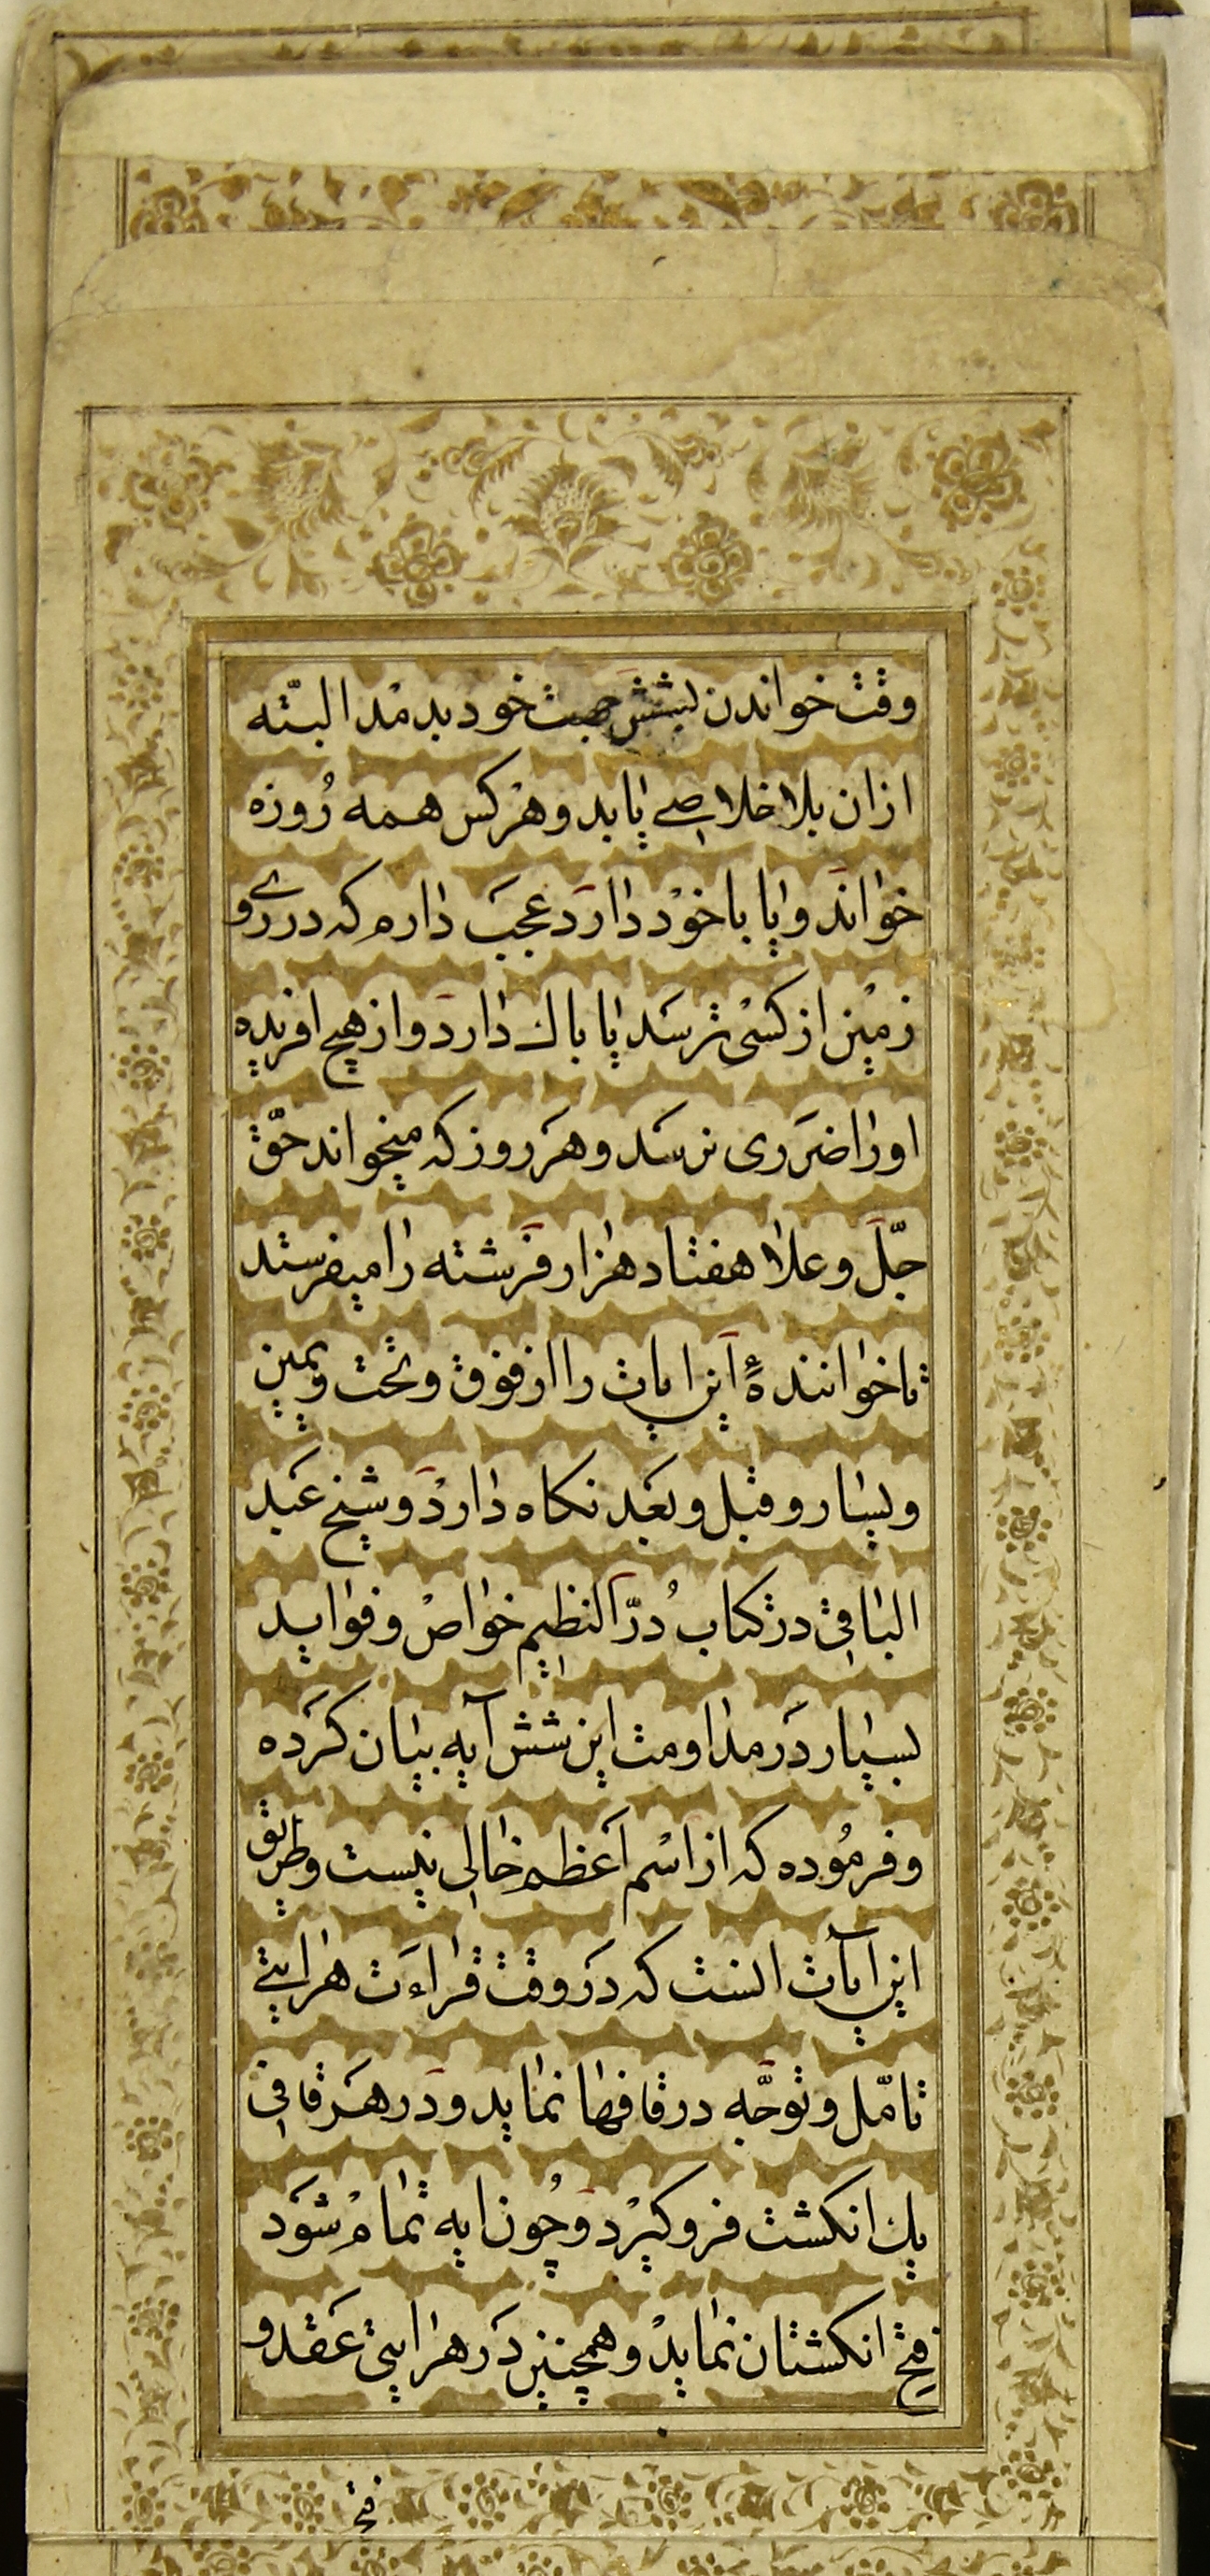 وقت خواندن بشش جهت خود بدمد البتّه
ازان بلا خلاصے یابد و هرکس همه رُوزه
خواند و یا با خود دارد عجب دارم که در روے
زمین از کسی ترسد یا باک دارد و از هیچ افریده
اورا ضرری نرسد و هر روز که میخواند حقّ
جلّ و علا هفتاد هزار فرشته را میفرستد
تا خوانندهٔ این ایات را از فوق و تحت و یمین
و یسار و قبل و بعد نکاه دارد و شیخ عبد
الباقی در کتاب دُرّ النظیم خواص و فواید
بسیار در مداومت این شش آیه بیان کرده
و فرموُده که از اسم اعظم خالی نیست و طریق
این ایآت انست که در وقت قراءت هر ایتے
تامّل و توجّه در قافها نماید و در هر قافی
یک انکشت فروکیرد و چُون ایه تمام شود
فتح انکشتان نماید و همچنین در هر ایتی عقد و
فتح